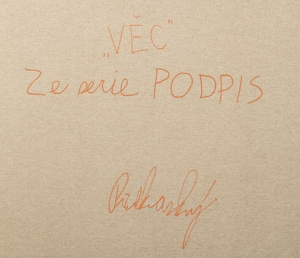 „VĚC"
Ze serie PODPIS